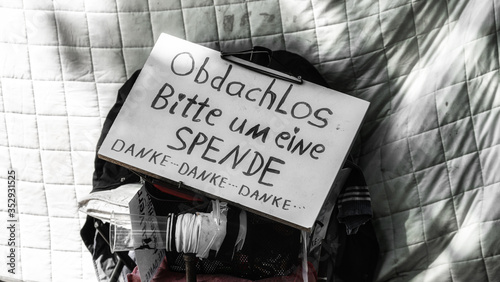 Obdachlos
Bitte um eine
SPENDE
DANKE... DANKE... DANKE...
Adobe Stock | #352931525